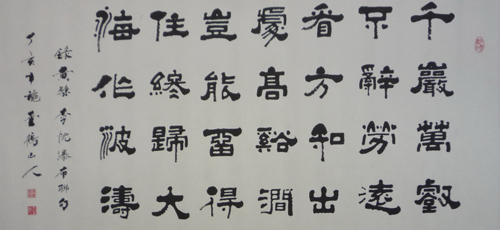 千巖萬壑
不辭勞遠
看方知出
處高谿澗
豈能留得
住終歸大
海作波濤
錄黃檗李忱瀑布聯句
丁亥年穐鶴山人